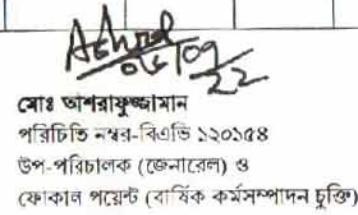 Ashraf
05/09/22
মোঃ আশরাফুজ্জামান
পরিচিতি নম্বর-বিএভি ১২০১৫৪
উপ-পরিচালক (জেনারেল) ও
ফোকাল পয়েন্ট (বার্ষিক কর্মসম্পাদন চুক্তি)